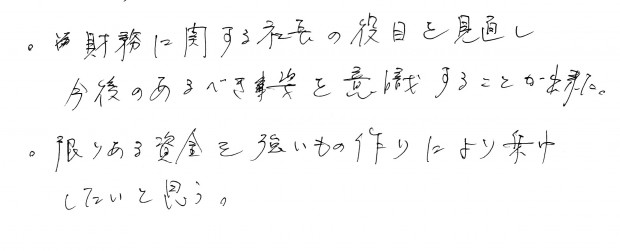 。財務に関する社長の役目を見直し
今後のあるべき姿を意識することが出来た。
。限りある資金を強いもの作りにより集中
したいと思う。